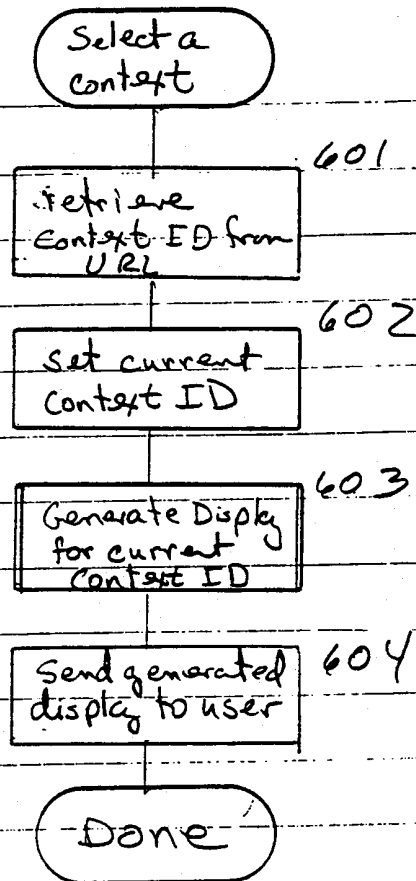 Select a
context
601
retrieve
context ID from
URL
602
set current
context ID
603
Generate Display
for current
context ID
604
Send generated
display to user
Done